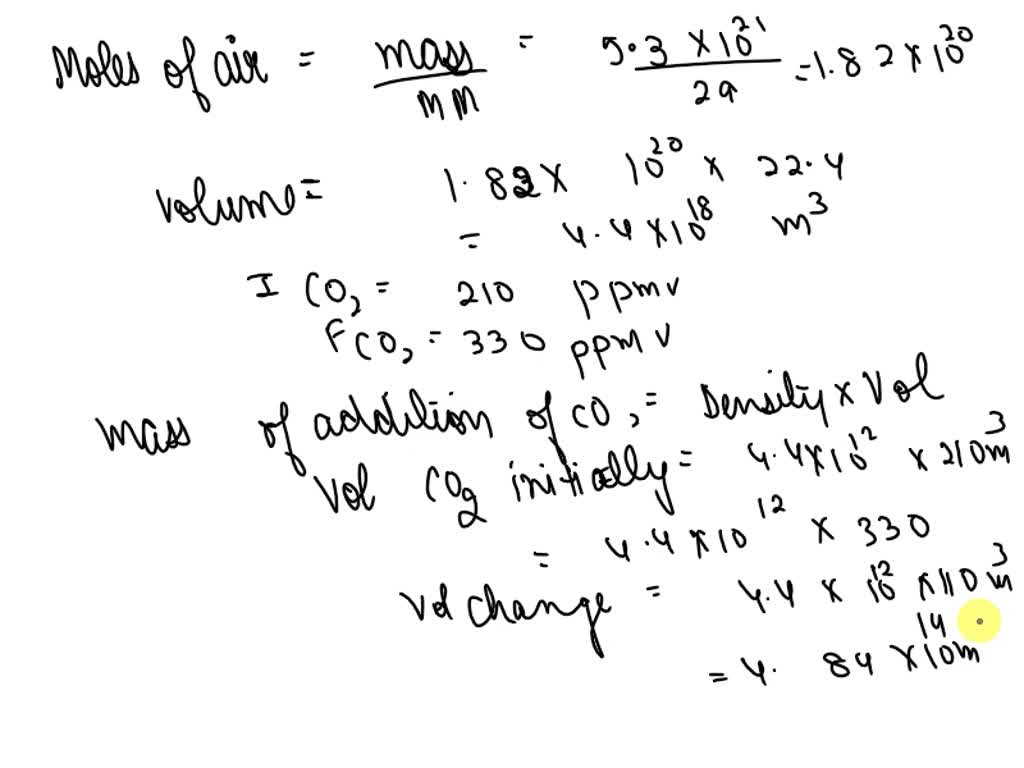 Moles of air = mass / MM = 5.3 × 10²¹ / 29 = 1.82 × 10²⁰
Volume = 1.82 × 10²⁰ × 22.4
= 4.4 × 10¹⁸ m³
I CO₂ = 210 ppmv
F CO₂ = 330 ppmv
mass of addition of CO₂ = Density × Vol
Vol CO₂ initially = 4.4 × 10¹² × 210 m³
= 4.4 × 10¹² × 330
Vol change = 4.4 × 10¹² × 110 m³
= 4.84 × 10¹⁴ m